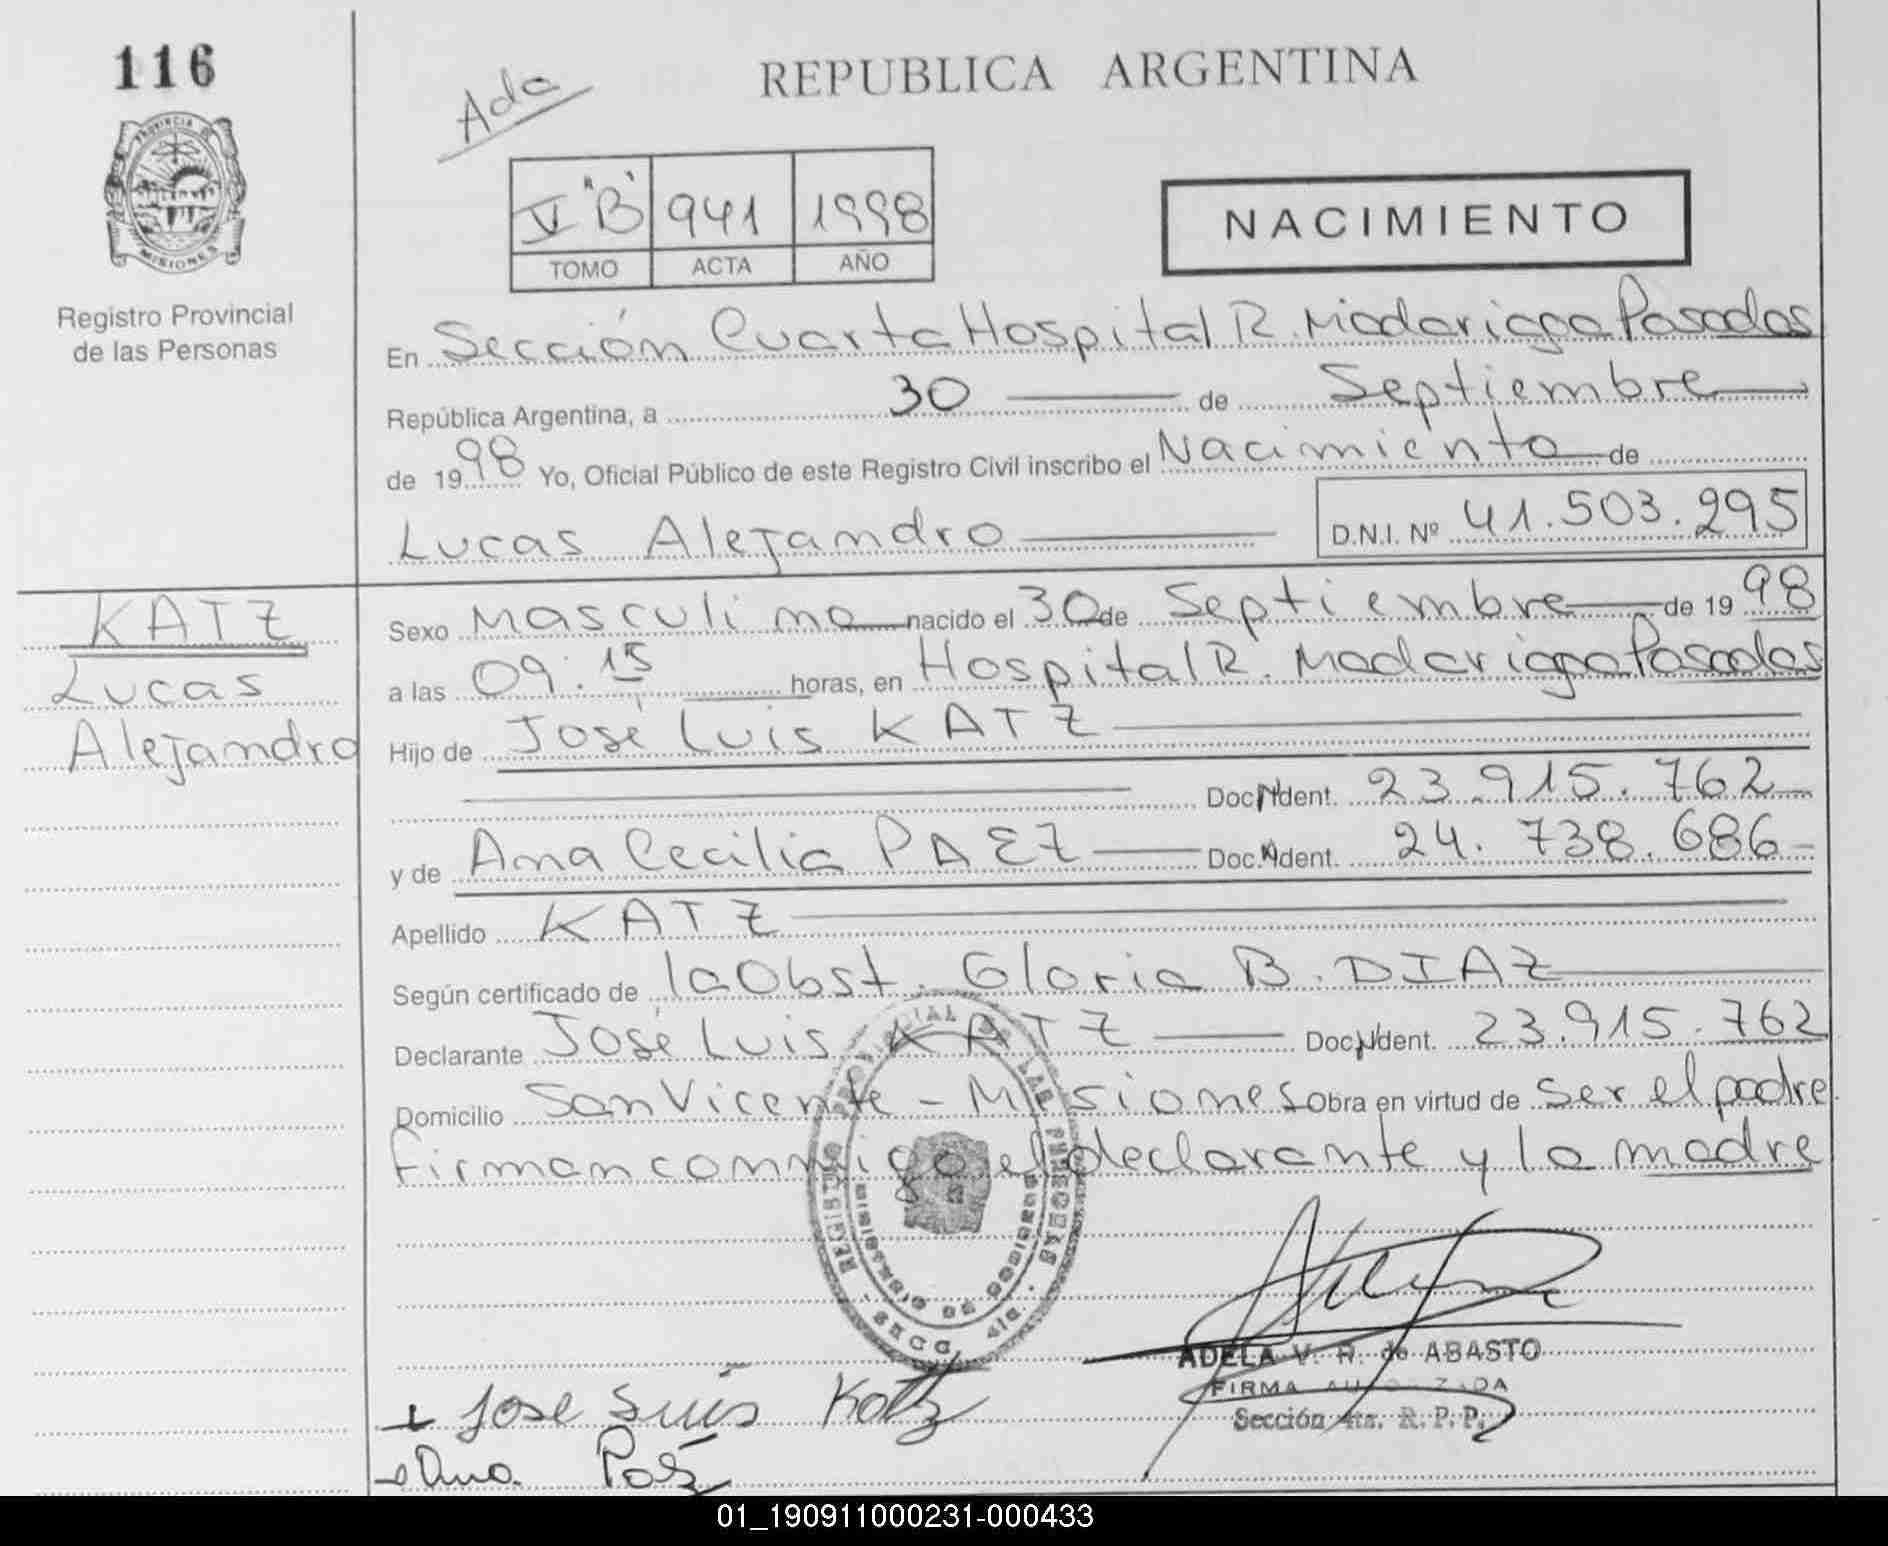 116
Ada
REPUBLICA ARGENTINA
PROVINCIA DE
MISIONES
V "B" 941 1998
TOMO ACTA AÑO
NACIMIENTO
Registro Provincial
de las Personas
En Sección Cuarta Hospital R. Madariaga Posadas
República Argentina, a 30 de Septiembre
de 1998 Yo, Oficial Público de este Registro Civil inscribo el Nacimiento de
Lucas Alejandro D.N.I. Nº 41.503.295
KATZ
Lucas
Alejandro
Sexo Masculino nacido el 30 de Septiembre de 1998
a las 09:15 horas, en Hospital R. Madariaga Posadas
Hijo de José Luis KATZ
Doc. Ident. 23.915.762
y de Ana Cecilia PAEZ Doc. Ident. 24.738.686
Apellido KATZ
Según certificado de la Obst. Gloria B. DIAZ
Declarante José Luis KATZ Doc. Ident. 23.915.762
Domicilio San Vicente - Misiones Obra en virtud de ser el padre
firman conmigo el declarante y la madre
REGISTRO PROVINCIAL DE LAS PERSONAS
ADELA V. R. de ABASTO
FIRMA AUTORIZADA
Sección 4ta. R. P. P.
Jose Luis Katz
Ana Paez
01_190911000231-000433